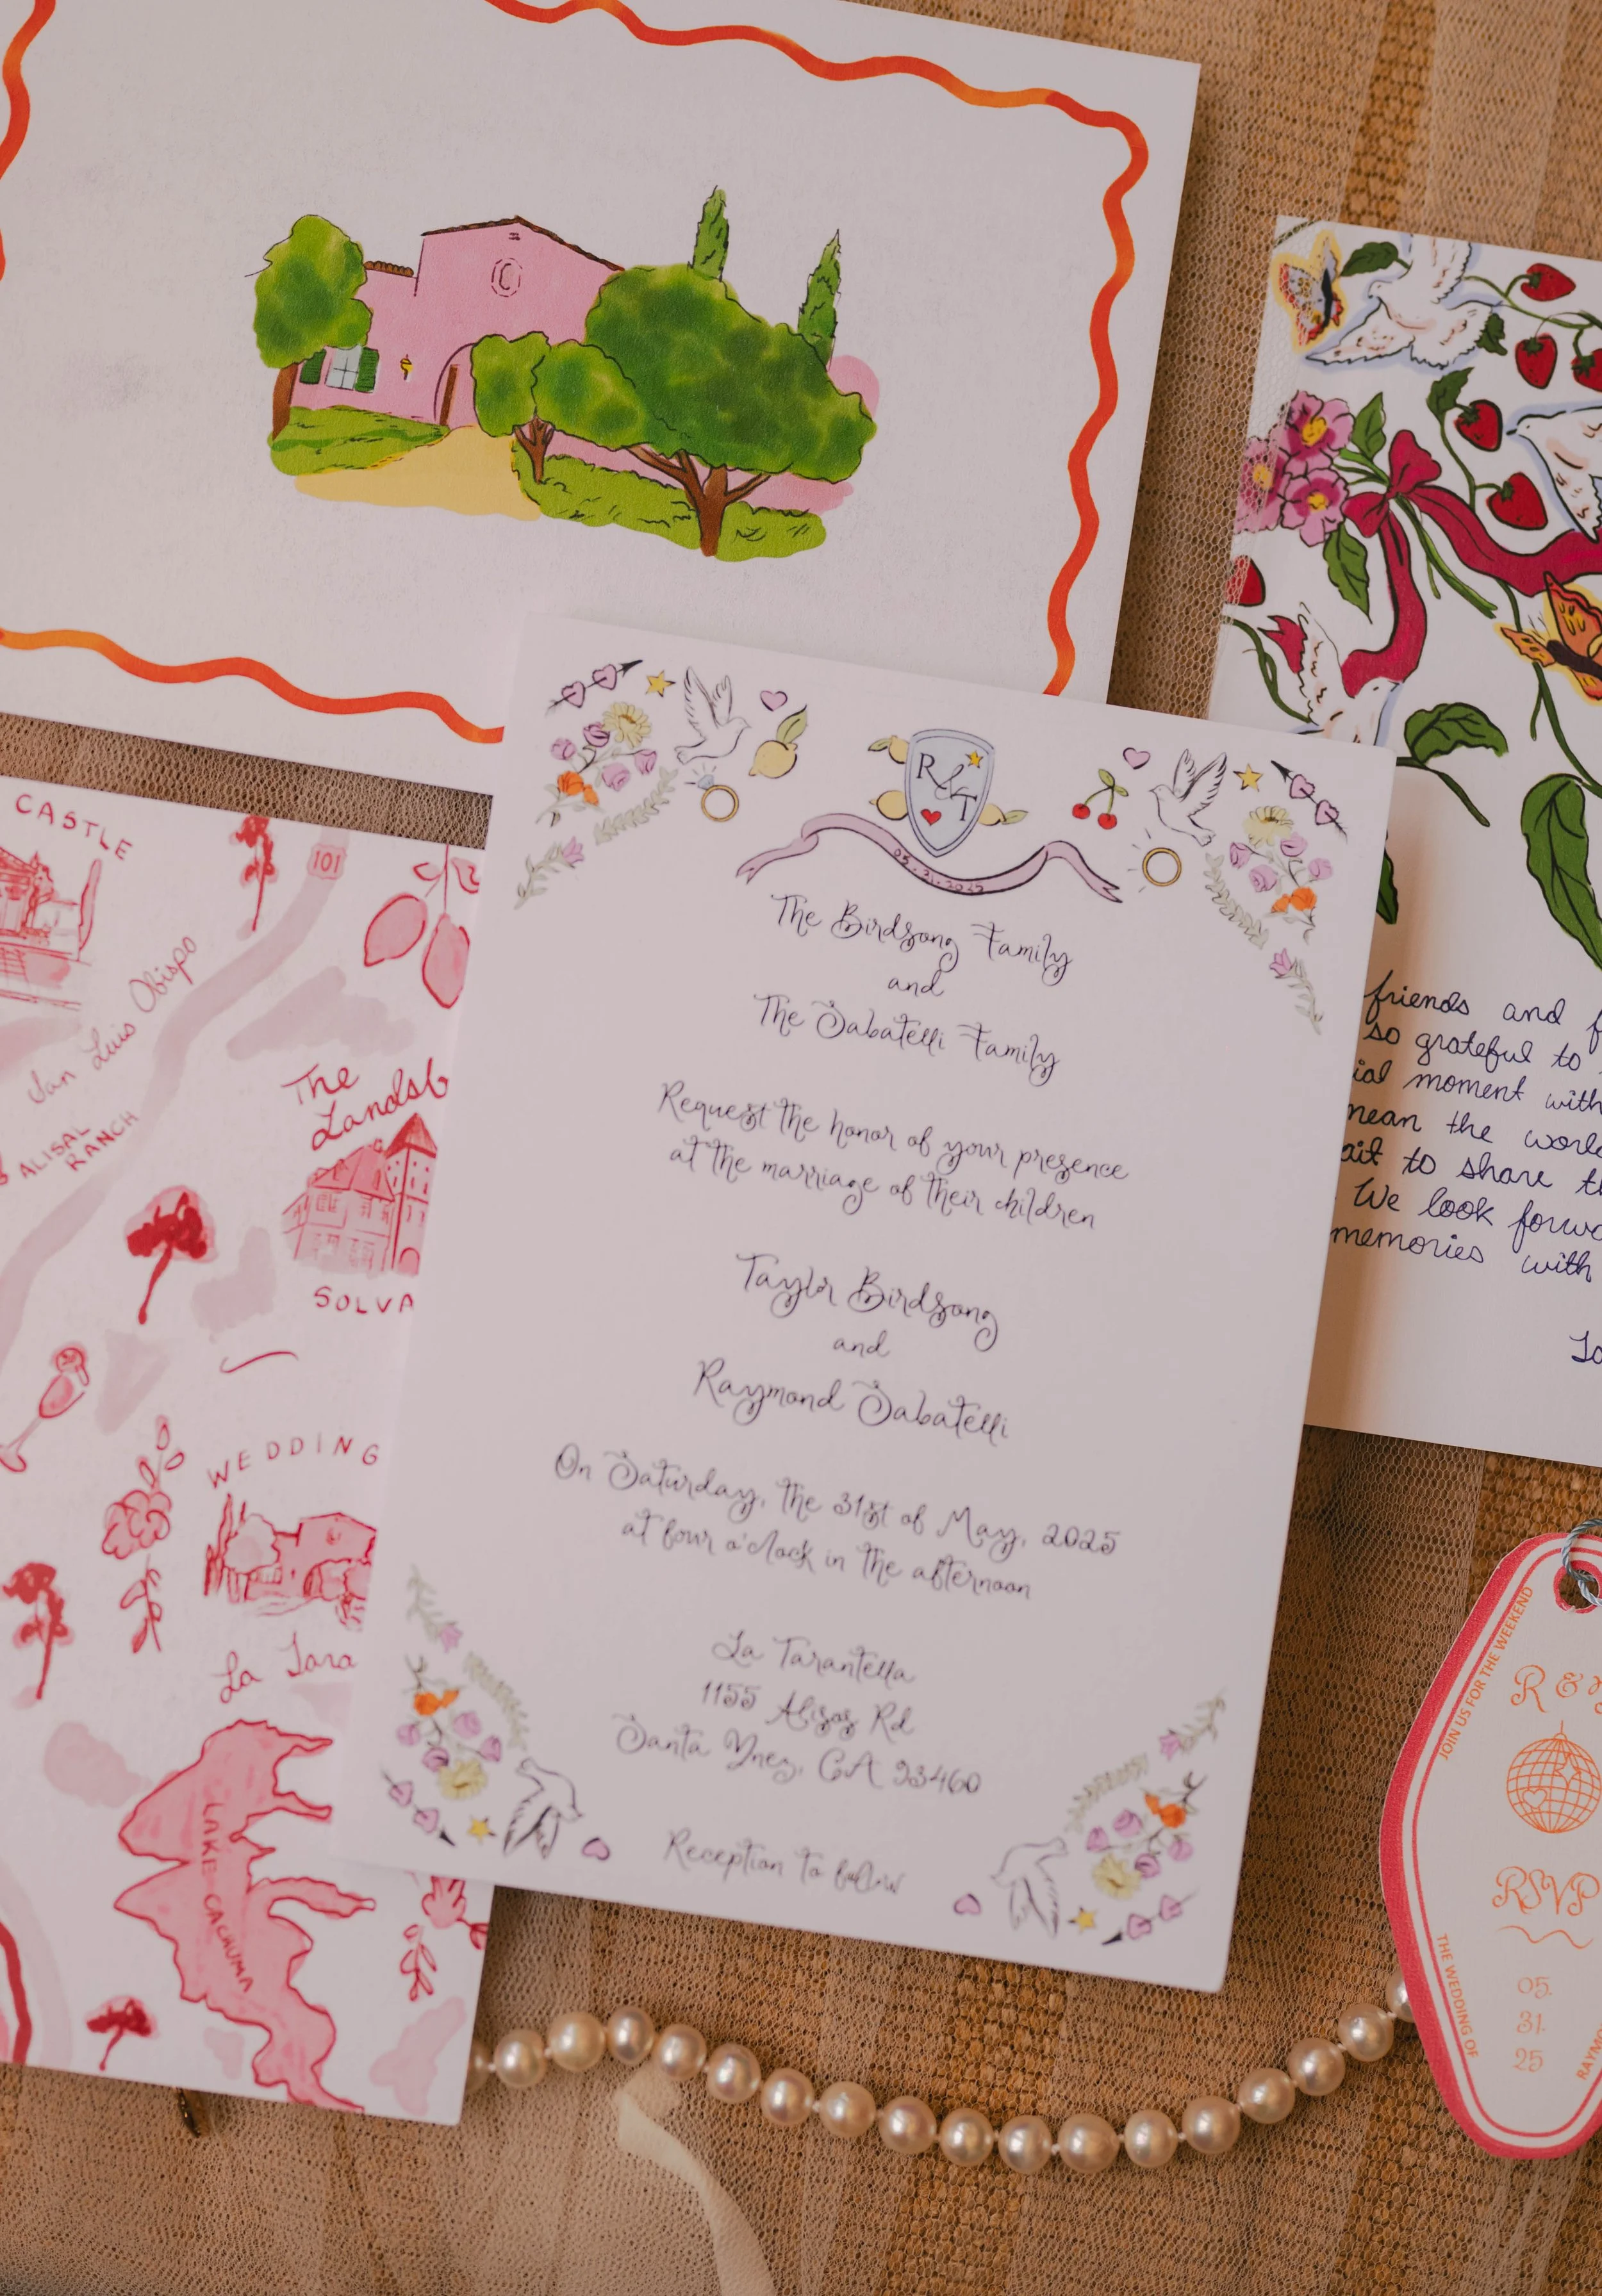 R & T
05.31.2025
The Birdsong Family
and
The Sabatelli Family
Request the honor of your presence
at the marriage of their children
Taylor Birdsong
and
Raymond Sabatelli
On Saturday, the 31st of May, 2025
at four o'clock in the afternoon
La Tarantella
1155 Alisos Rd
Santa Ynez, CA 93460
Reception to follow
CASTLE
101
San Luis Obispo
ALISAL
RANCH
The
Landsb
SOLVA
WEDDING
La Tara
LAKE CACHUMA
friends and f
so grateful to
ial moment with
mean the world
ait to share th
We look forwa
memories with
JOIN US FOR THE WEEKEND
R &
RSVP
05.
31.
25
THE WEDDING OF
RAYMO